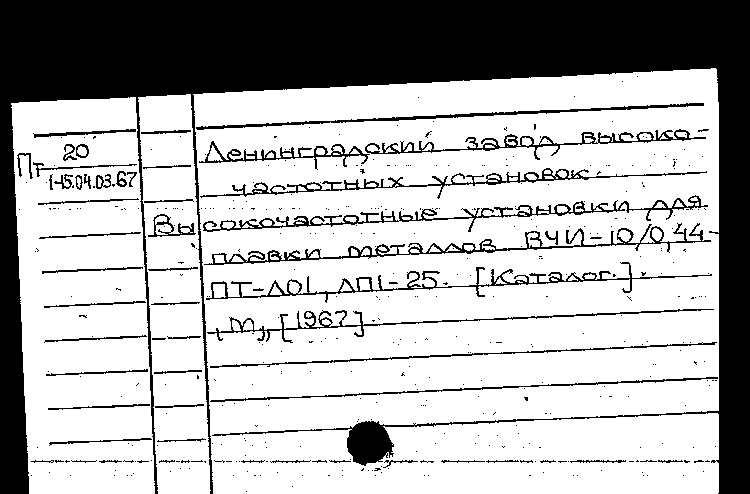 Пт 20
1-15.04.03.67
Ленинградский завод высоко-
частотных установок.
Высокочастотные установки для
плавки металлов ВЧИ-10/0,44-
ПТ-Л01, ЛП1-25. [Каталог.].
М., [1967].